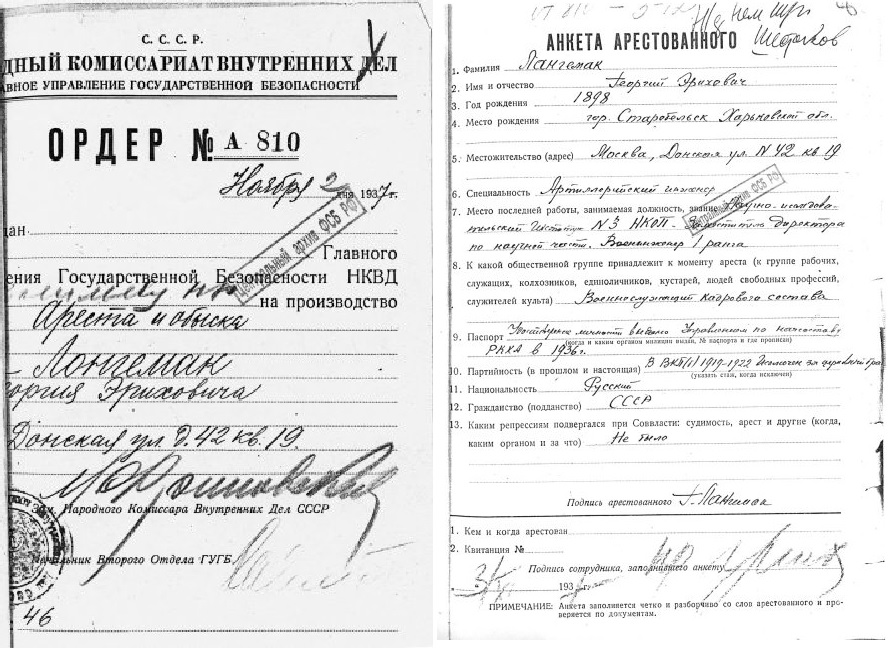 С. С. С. Р.
ДНЫЙ КОМИССАРИАТ ВНУТРЕННИХ ДЕЛ
АВНОЕ УПРАВЛЕНИЕ ГОСУДАРСТВЕННОЙ БЕЗОПАСНОСТИ
ОРДЕР № А 810
Ноября 2 дня 1937 г.
Центральный архив ФСБ РФ
дан
Главного
ения Государственной Безопасности НКВД
на производство
Ареста и обыска
Лонгеман
оргия Эриховича
Донская ул. д. 42 кв. 19.
Зам. Народного Комиссара Внутренних Дел СССР
Начальник Второго Отдела ГУГБ
46
АНКЕТА АРЕСТОВАННОГО
1. Фамилия Лангемак
2. Имя и отчество Георгий Эрихович
3. Год рождения 1898
4. Место рождения гор. Старобельск Харьковской обл.
5. Местожительство (адрес) Москва, Донская ул. N 42 кв 19
6. Специальность Артиллерийский инженер
Центральный архив ФСБ РФ
7. Место последней работы, занимаемая должность, звание Научно-исследова-
тельский Институт N 3 НКОП. Заместитель директора
по научной части. Военинженер 1 ранга
8. К какой общественной группе принадлежит к моменту ареста (к группе рабочих,
служащих, колхозников, единоличников, кустарей, людей свободных профессий,
служителей культа) Военнослужащий кадрового состава
9. Паспорт личности выдано Управлением по начсоставу
(когда и каким органом милиции выдан, № паспорта и где прописан)
РККА в 1936 г.
10. Партийность (в прошлом и настоящая) В ВКП(б) 1919-1922 Исключен за церковный бра
(указать стаж, когда исключен)
11. Национальность Русский
12. Гражданство (подданство) СССР
13. Каким репрессиям подвергался при Соввласти: судимость, арест и другие (когда,
каким органом и за что) Не было
Подпись арестованного Г. Лангемак
1. Кем и когда арестован
2. Квитанция №
Подпись сотрудника, заполнившего анкету
193
ПРИМЕЧАНИЕ: Анкета заполняется четко и разборчиво со слов арестованного и про-
веряется по документам.